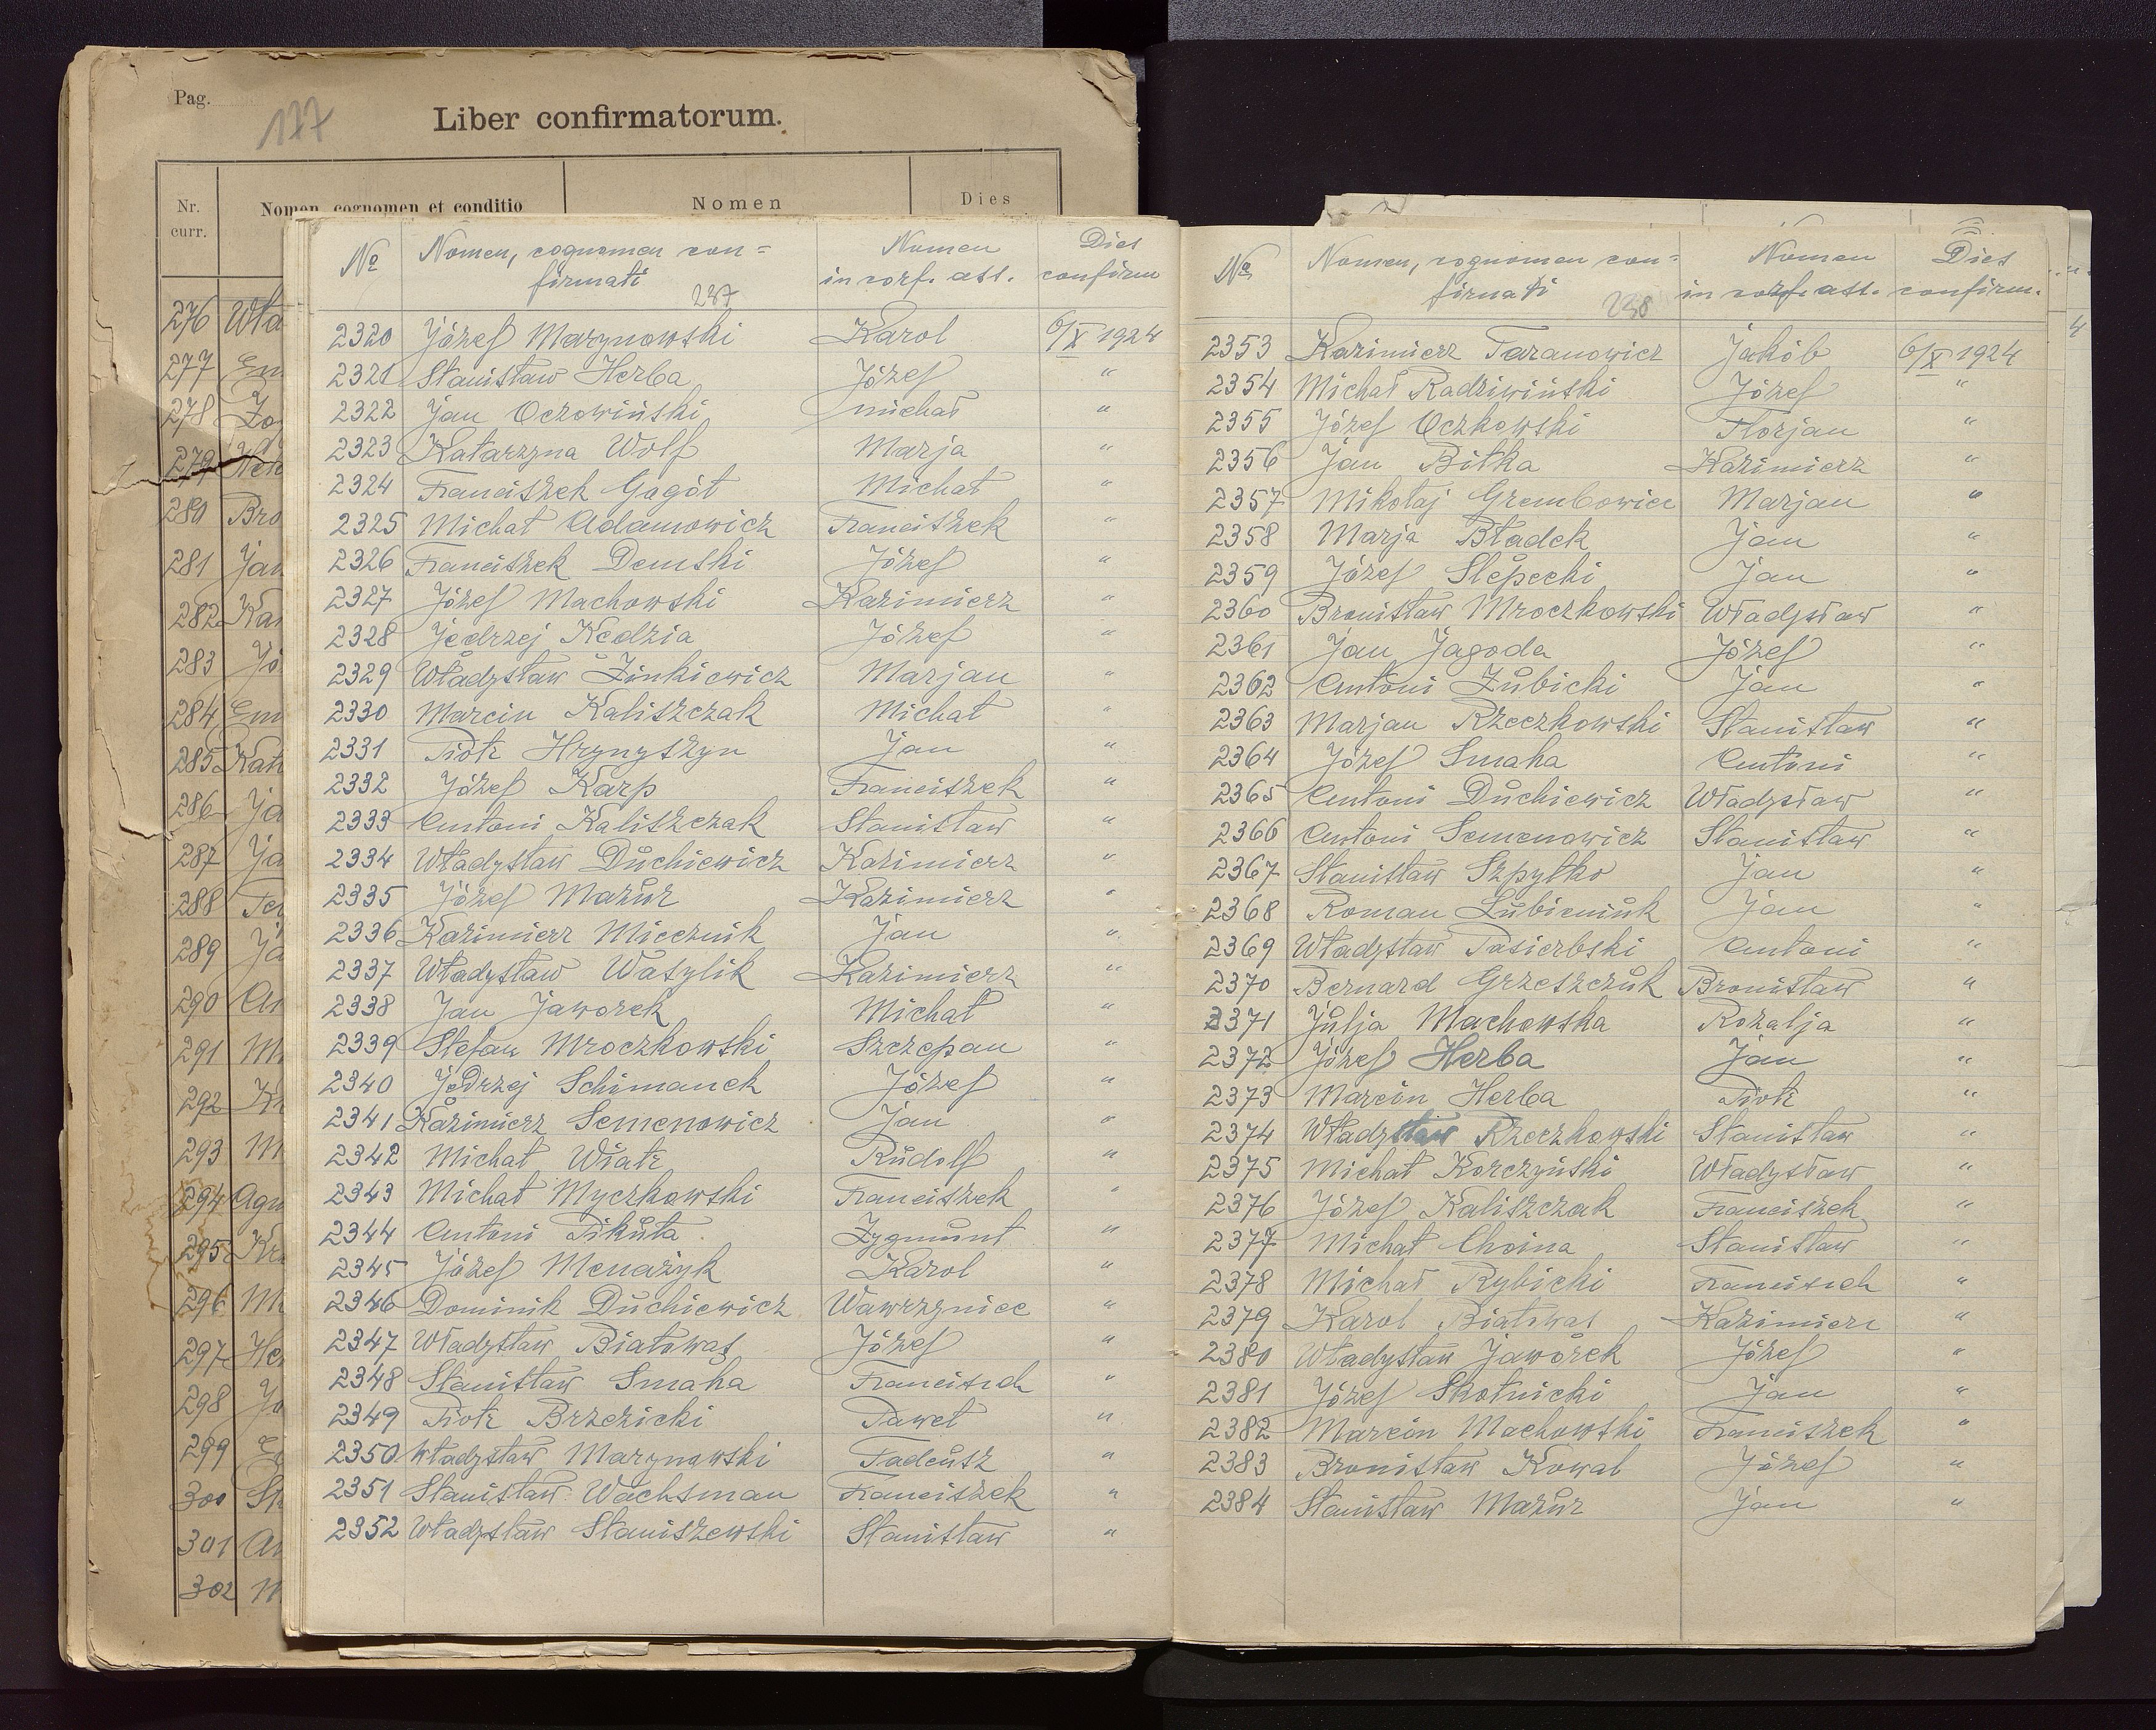 Pag.
177
Liber confirmatorum.
Nr. curr. Nomen, cognomen et conditio Nomen Dies
276 Wła
277 Em
278 Zo
279
280 Bro
281 Jan
282 Kaz
283 Jó
284 Em
285 Kat
286 Ja
287 Ja
288
289 Ja
290 An
291 M
292 K
293 M
294 Agn
295
296 M
297 He
298 Jo
299
300 St
301 A
302 M
№ Nomen, cognomen con= Nomen Dies
firmati in conf. ass. confirm
237
2320 Józef Marynowski Karol 6/X 1924
2321 Stanisław Herba Józef "
2322 Jan Oczowiński Michał "
2323 Katarzyna Wolf Marja "
2324 Franciszek Gagót Michał "
2325 Michał Adamowicz Franciszek "
2326 Franciszek Demski Józef "
2327 Józef Machowski Kazimierz "
2328 Jędrzej Kędzia Józef "
2329 Władysław Zinkiewicz Marjan "
2330 Marcin Kaliszczak Michał "
2331 Piotr Hrynyszyn Jan "
2332 Józef Karp Franciszek "
2333 Antoni Kaliszczak Stanisław "
2334 Władysław Duchiewicz Kazimierz "
2335 Józef Mazur Kazimierz "
2336 Kazimierz Miecznik Jan "
2337 Władysław Wasylik Kazimierz "
2338 Jan Jaworek Michał "
2339 Stefan Mroczkowski Szczepan "
2340 Jędrzej Schimanek Józef "
2341 Kazimierz Semenowicz Jan "
2342 Michał Wiatr Rudolf "
2343 Michał Myczkowski Franciszek "
2344 Antoni Pikuta Zygmunt "
2345 Józef Menażyk Karol "
2346 Dominik Duchiewicz Wawrzyniec "
2347 Władysław Białowąs Józef "
2348 Stanisław Smaha Franciszek "
2349 Piotr Brzezicki Paweł "
2350 Władysław Marynowski Tadeusz "
2351 Stanisław Wachsman Franciszek "
2352 Władysław Staniszewski Stanisław "
№ Nomen, cognomen con= Nomen Dies
firmati in conf. ass. confirm.
238
2353 Kazimierz Taranowicz Jakób 6/X 1924
2354 Michał Radziwiński Józef "
2355 Józef Oczkowski Florjan "
2356 Jan Bitka Kazimierz "
2357 Mikołaj Grembowicz Marjan "
2358 Marja Bładek Jan "
2359 Józef Slepecki Jan "
2360 Bronisław Mroczkowski Władysław "
2361 Jan Jagoda Józef "
2362 Antoni Zubicki Jan "
2363 Marjan Rzeczkowski Stanisław "
2364 Józef Smaha Antoni "
2365 Antoni Duchiewicz Władysław "
2366 Antoni Semenowicz Stanisław "
2367 Stanisław Szpytko Jan "
2368 Roman Łubieniuk Jan "
2369 Władysław Pasierbski Antoni "
2370 Bernard Grzeszczuk Bronisław "
2371 Julja Machowska Rozalja "
2372 Józef Herba Jan "
2373 Marcin Herba Piotr "
2374 Władysław Rzeczkowski Stanisław "
2375 Michał Korczyński Władysław "
2376 Józef Kaliszczak Franciszek "
2377 Michał Choina Stanisław "
2378 Michał Rybicki Franciszek "
2379 Karol Białowąs Kazimierz "
2380 Władysław Jaworek Józef "
2381 Józef Skotnicki Jan "
2382 Marcin Machowski Franciszek "
2383 Bronisław Kowal Józef "
2384 Stanisław Mazur Jan "
4